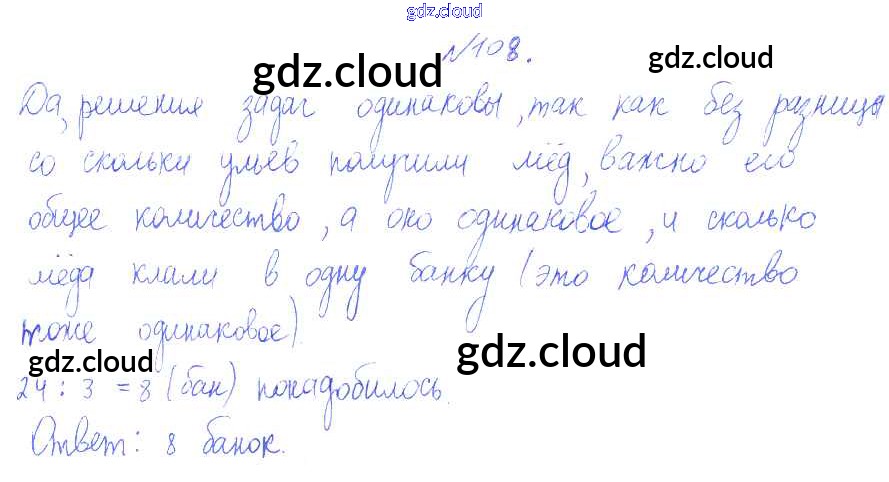 gdz.cloud
№108.
gdz.cloud gdz.cloud
Да, решения задач одинаковы, так как без разницы
со скольки ульев получили мёд, важно его
общее количество, а оно одинаковое, и сколько
мёда клали в одну банку (это количество
тоже одинаковое)
gdz.cloud gdz.cloud
24 : 3 = 8 (бан) понадобилось.
Ответ: 8 банок.